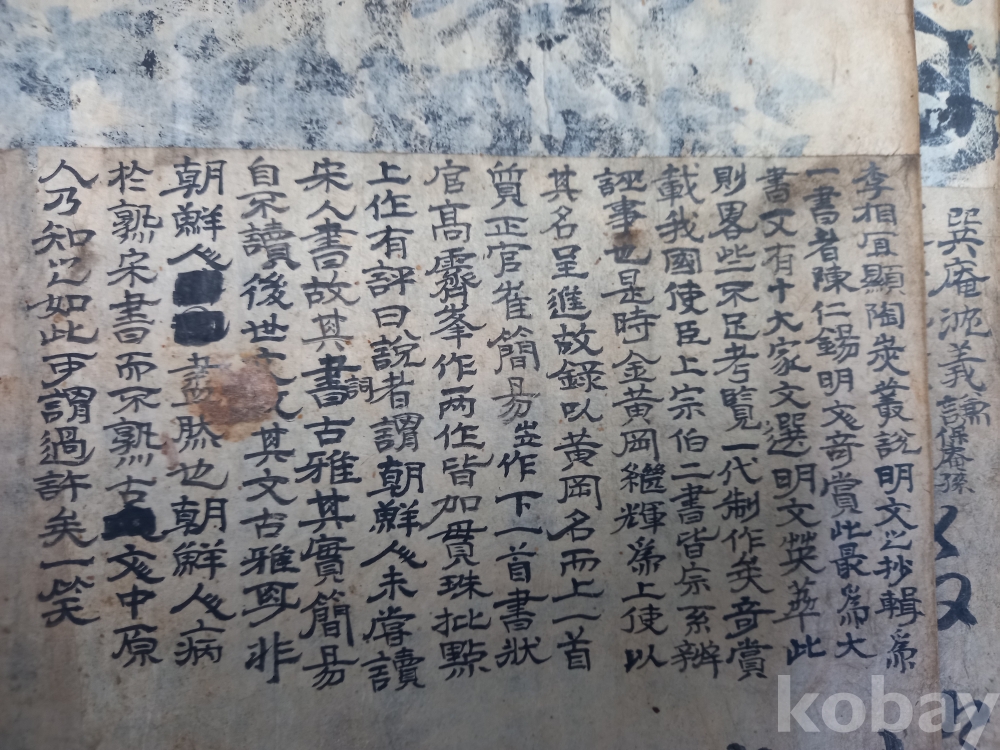 巽庵沈義謙儉庵孫
李相宜顯陶炭叢說明文之抄輯爲
一書者陳仁錫明文奇賞此最爲大
書又有十大家文選明文英華此
則畧些不足考覽一代制作矣奇賞
載我國使臣上宗伯二書皆宗系辨
誣事也是時金黃岡繼輝爲上使以
其名呈進故錄以黃岡名而上一首
質正官崔簡易岦作下一首書狀
官高霽峯作兩作皆加貫珠批點
上作有評曰說者謂朝鮮人未嘗讀
宋人書故其書詞古雅其實簡易
自不讀後世文故其文古雅耳非
朝鮮人 盡然也朝鮮人病
於熟宋書而不熟古文中原
人乃知之如此可謂過許矣一笑
kobay